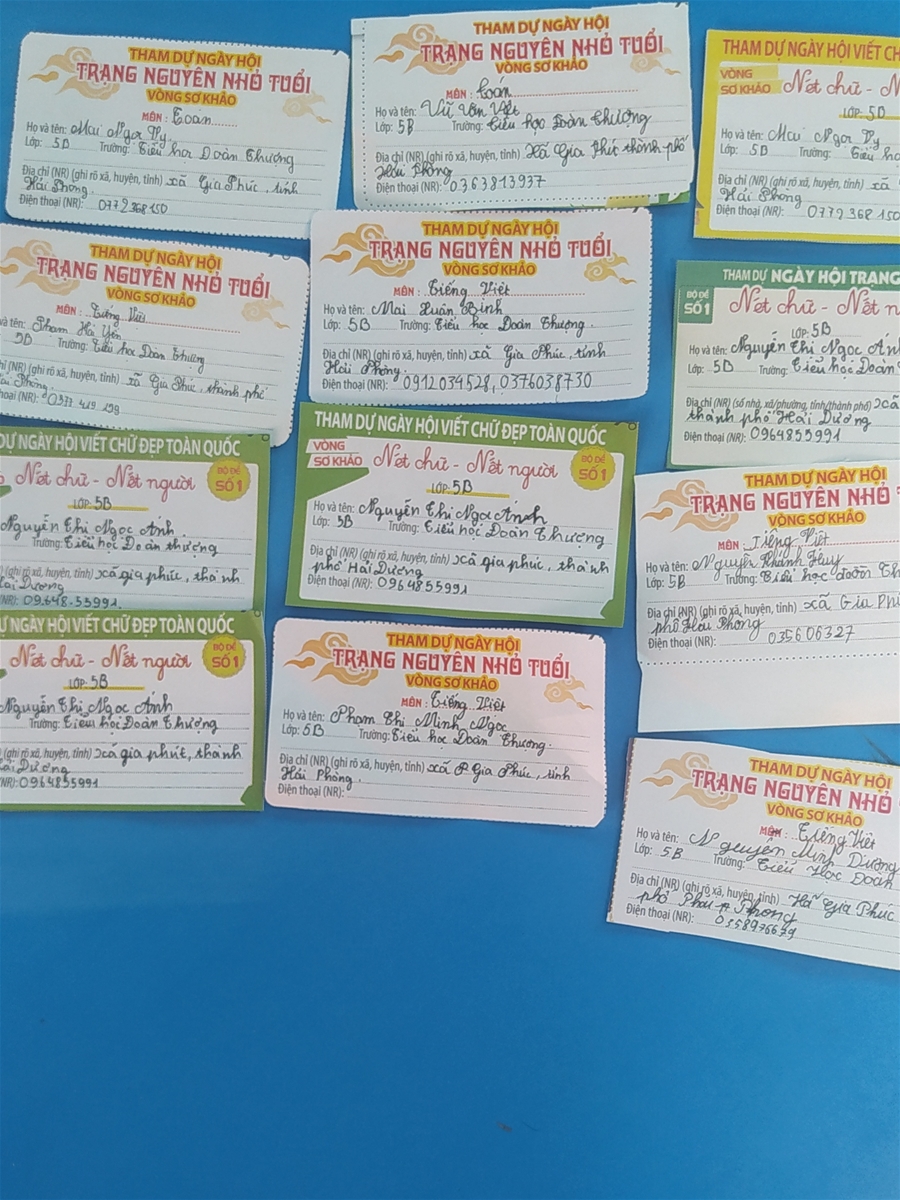 THAM DỰ NGÀY HỘI
TRẠNG NGUYÊN NHỎ TUỔI
VÒNG SƠ KHẢO
MÔN : Toán
Họ và tên: Mai Ngọc Vy
Lớp: 5B Trường: Tiểu học Đoàn Thượng
Địa chỉ (NR) (ghi rõ xã, huyện, tỉnh) xã Gia Phúc, tỉnh
Hải Phòng
Điện thoại (NR): 0772 368 150
THAM DỰ NGÀY HỘI
TRẠNG NGUYÊN NHỎ TUỔI
VÒNG SƠ KHẢO
MÔN : Toán
Họ và tên: Vũ Văn Việt
Lớp: 5B Trường: Tiểu học Đoàn Thượng
Địa chỉ (NR) (ghi rõ xã, huyện, tỉnh) Xã Gia Phúc thành phố
Hải Phòng
Điện thoại (NR): 0363813937
THAM DỰ NGÀY HỘI VIẾT CH
VÒNG
SƠ KHẢO Nét chữ - N
LỚP: 5B
Họ và tên: Mai Ngọc Vy
Lớp: 5B Trường: Tiểu họ
Địa chỉ (NR) (ghi rõ xã, huyện, tỉnh) xã
Hải Phòng
Điện thoại (NR): 0772 368 150
THAM DỰ NGÀY HỘI
TRẠNG NGUYÊN NHỎ TUỔI
VÒNG SƠ KHẢO
MÔN : Tiếng Việt
và tên: Phạm Hải Yến
5B Trường: Tiểu học Đoàn Thượng
chỉ (NR) (ghi rõ xã, huyện, tỉnh) xã Gia Phúc, thành phố
Hải Phòng
thoại (NR): 0377 419 199
THAM DỰ NGÀY HỘI
TRẠNG NGUYÊN NHỎ TUỔI
VÒNG SƠ KHẢO
MÔN : Tiếng Việt
Họ và tên: Mai Xuân Bình
Lớp: 5B Trường: Tiểu học Đoàn Thượng.
Địa chỉ (NR) (ghi rõ xã, huyện, tỉnh) xã Gia Phúc, tỉnh
Hải Phòng.
Điện thoại (NR): 0912034528, 0376038730
THAM DỰ NGÀY HỘI TRẠNG
BỘ ĐỀ
SỐ 1 Nét chữ - Nết n
LỚP: 5B
Họ và tên: Nguyễn Thị Ngọc Ánh
Lớp: 5B Trường: Tiểu học Đoàn
Địa chỉ (NR) (số nhà, xã/phường, tỉnh/thành phố) xã
thành phố Hải Dương
Điện thoại (NR): 0964855991
Ự NGÀY HỘI VIẾT CHỮ ĐẸP TOÀN QUỐC
Nét chữ - Nết người
BỘ ĐỀ
SỐ 1
LỚP: 5B
Nguyễn Thị Ngọc Ánh.
Trường: Tiểu học Đoàn thượng
(ghi rõ xã, huyện, tỉnh) xã gia phúc, thành
Hải Dương
(NR): 09648.55991.
THAM DỰ NGÀY HỘI VIẾT CHỮ ĐẸP TOÀN QUỐC
VÒNG
SƠ KHẢO Nét chữ - Nết người
BỘ ĐỀ
SỐ 1
LỚP: 5B
Họ và tên: Nguyễn Thị Ngọc Ánh
Lớp: 5B Trường: Tiểu học Đoàn Thượng
Địa chỉ (NR) (ghi rõ xã, huyện, tỉnh) xã gia phúc, thành
phố Hải Dương
Điện thoại (NR): 0964855991
THAM DỰ NGÀY HỘI
TRẠNG NGUYÊN NHỎ
VÒNG SƠ KHẢO
MÔN : Tiếng Việt
Họ và tên: Nguyễn Khánh Huy
Lớp: 5B Trường: Tiểu học đoàn Th
Địa chỉ (NR) (ghi rõ xã, huyện, tỉnh) xã Gia Phú
phố Hải Phòng
Điện thoại (NR): 035606327
Ự NGÀY HỘI VIẾT CHỮ ĐẸP TOÀN QUỐC
Nét chữ - Nết người
BỘ ĐỀ
SỐ 1
LỚP: 5B
Nguyễn Thị Ngọc Ánh
Trường: Tiểu học Đoàn Thượng
(ghi rõ xã, huyện, tỉnh) xã gia phúc, thành
Hải Dương
(NR): 0964855991
THAM DỰ NGÀY HỘI
TRẠNG NGUYÊN NHỎ TUỔI
VÒNG SƠ KHẢO
MÔN : Tiếng Việt
Họ và tên: Phạm Thị Minh Ngọc
Lớp: 5B Trường: Tiểu học Đoàn Thượng.
Địa chỉ (NR) (ghi rõ xã, huyện, tỉnh) xã Gia Phúc, tỉnh
Hải Phòng.
Điện thoại (NR):
THAM DỰ NGÀY HỘI
TRẠNG NGUYÊN NHỎ
VÒNG SƠ KHẢO
MÔN : Tiếng Việt
Họ và tên: Nguyễn Minh Dương
Lớp: 5B Trường: Tiểu Học Đoàn
Địa chỉ (NR) (ghi rõ xã, huyện, tỉnh) Xã Gia Phúc
phố Phòng
Điện thoại (NR): 0358976679